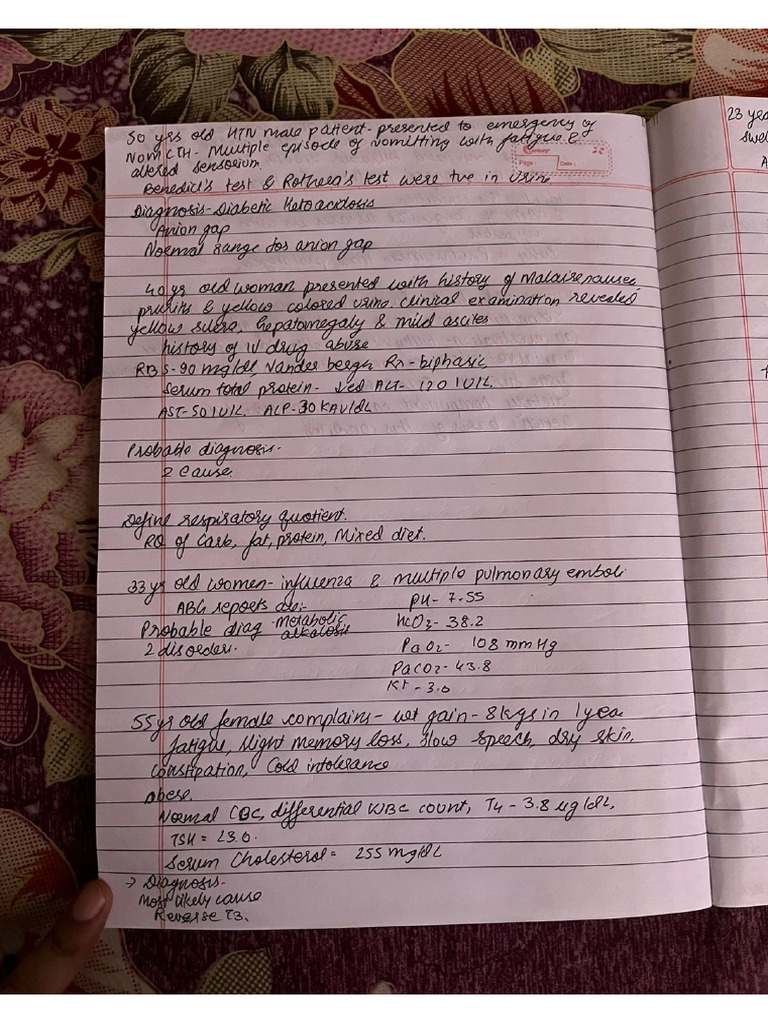 50 yrs old HTN male patient presented to emergency of
NDMCTH - Multiple episode of vomitting with fatigue &
altered sensorium.
Page : Date :
Benedict's test & Rothera's test were tve in Urine
Diagnosis - Diabetic Ketoacidosis
Anion gap
Normal range for anion gap
40 yr old woman presented with history of Malaise nausea,
pruritis & yellow colored urine. clinical examination revealed
yellow sclera, hepatomegaly & mild ascites
history of IV drug abuse
RBS - 90 mg/dl Vander bergh Rn - biphasic
Serum total protein - ↓ed ALT - 120 IU/L
AST - 50 IU/L ALP - 30 KAU/dL
Probable diagnosis -
2 cause.
Define respiratory quotient.
RQ of Carb, fat, protein, Mixed diet.
33 yr old women - influenza & multiple pulmonary emboli
ABG reports as:-
pH - 7.55
Probable diag - metabolic alkalosis
HCO3 - 38.2
2 disorders.
PaO2 - 108 mmHg
PaCO2 - 43.8
K+ - 3.0
55 yr old female complains - wt gain - 8kgs in 1 yea
fatigue, slight memory loss, slow speech, dry skin,
constipation, Cold intolerance
obese.
Normal CBC, differential WBC count, T4 - 3.8 ug/dL,
TSH = 23.0.
Serum Cholesterol = 255 mg/dL
→ Diagnosis -
Most likely cause
Reverse T3.
23 yea
swel
A